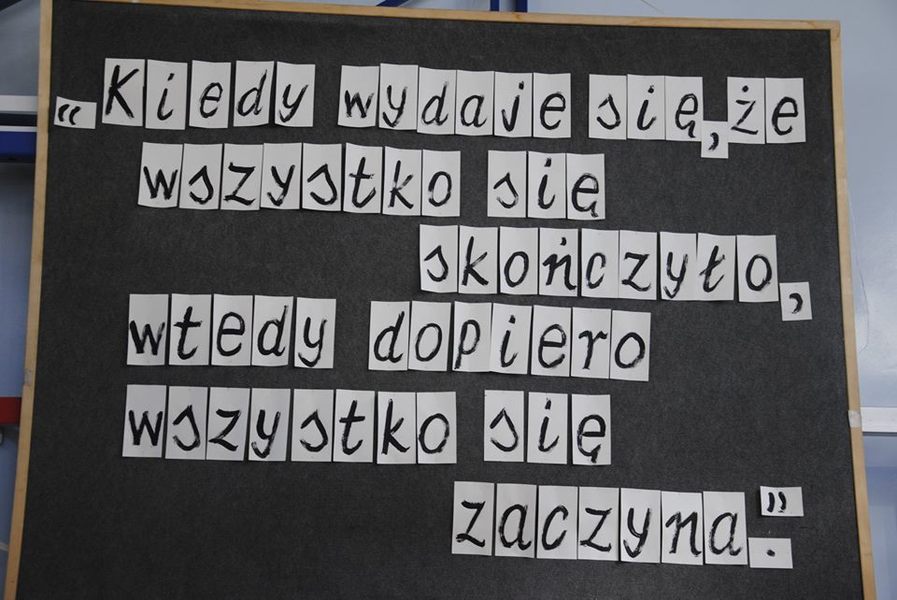 “Kiedy wydaje się, że
wszystko się
skończyło,
wtedy dopiero
wszystko się
zaczyna.”